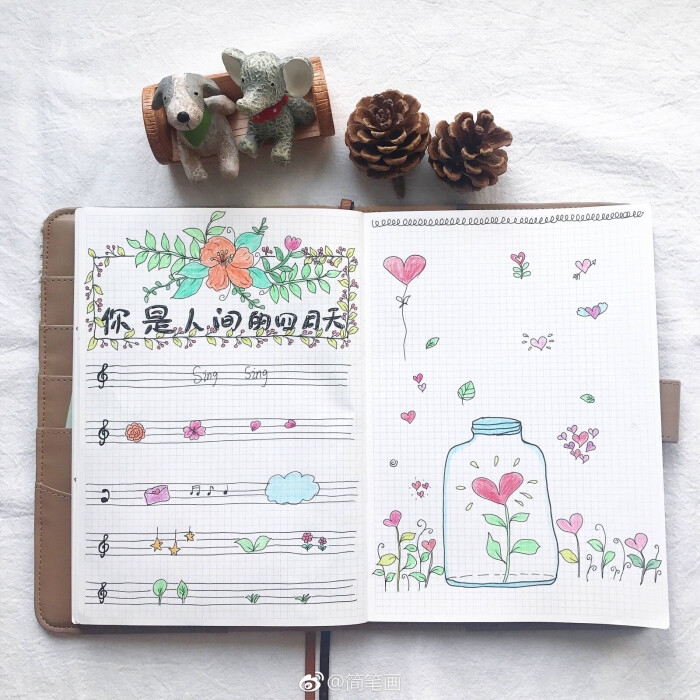 你是人间的四月天
Sing Sing
@简笔画